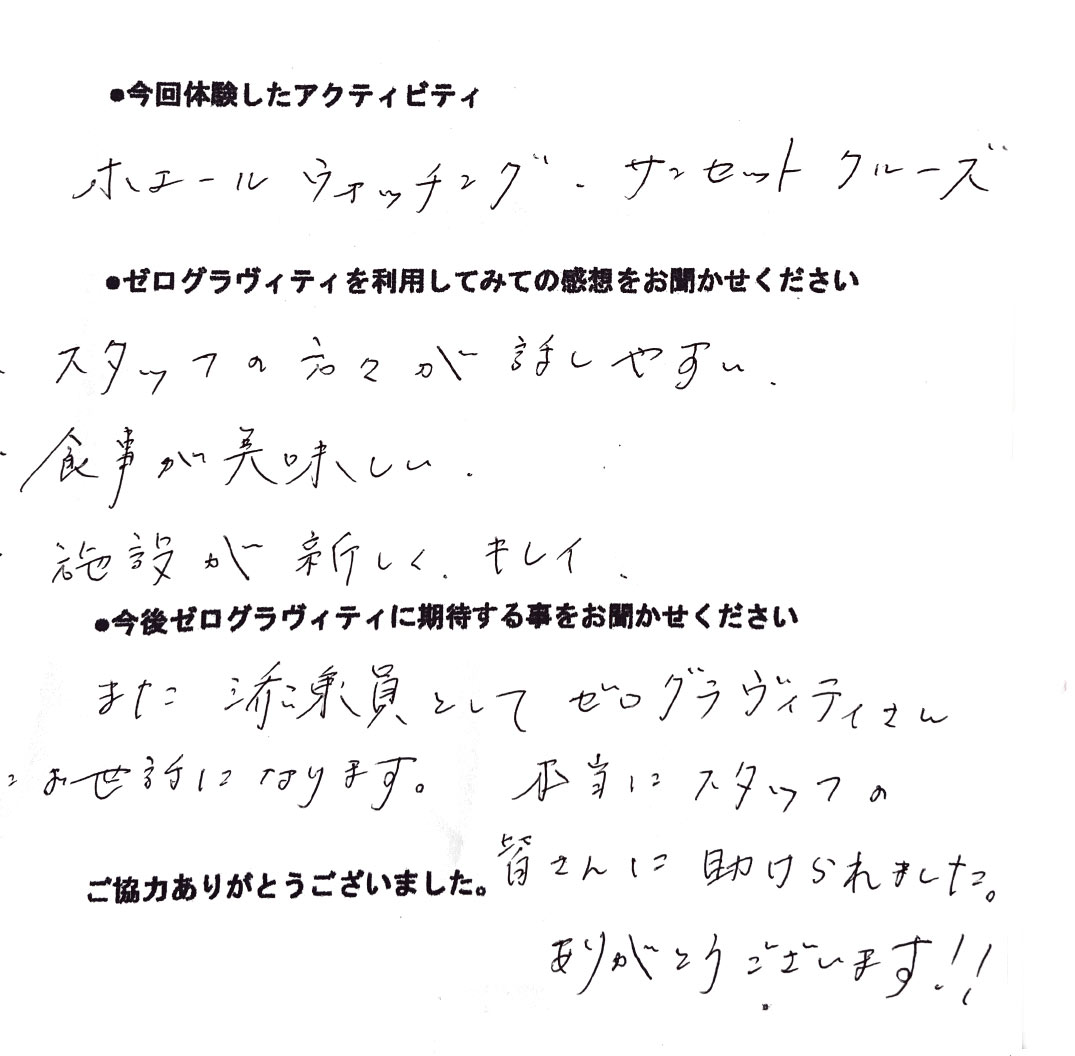 ●今回体験したアクティビティ
ホエールウォッチング．サンセットクルーズ
●ゼログラヴィティを利用してみての感想をお聞かせください
・スタッフの方々が話しやすい．
・食事が美味しい．
・施設が新しく．キレイ．
●今後ゼログラヴィティに期待する事をお聞かせください
また添乗員としてゼログラヴィティさん
にお世話になります。 本当にスタッフの
皆さんに助けられました。
ご協力ありがとうございました。
ありがとうございます!!